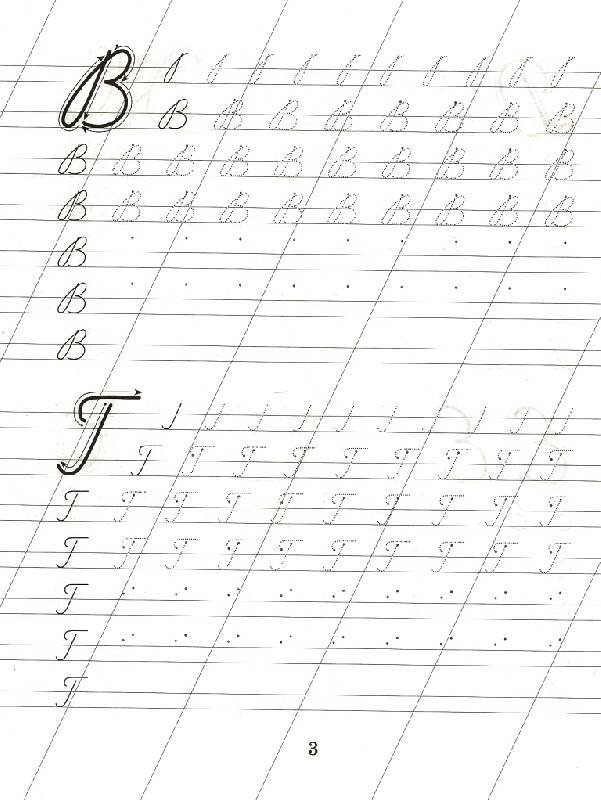 B
B B B B B B B B
B B B B B B B B B B
B B B B B B B B B B
B
B
B
T
T T T T T T T T T
T T T T T T T T T T
T T T T T T T T T T
T
T
T
3